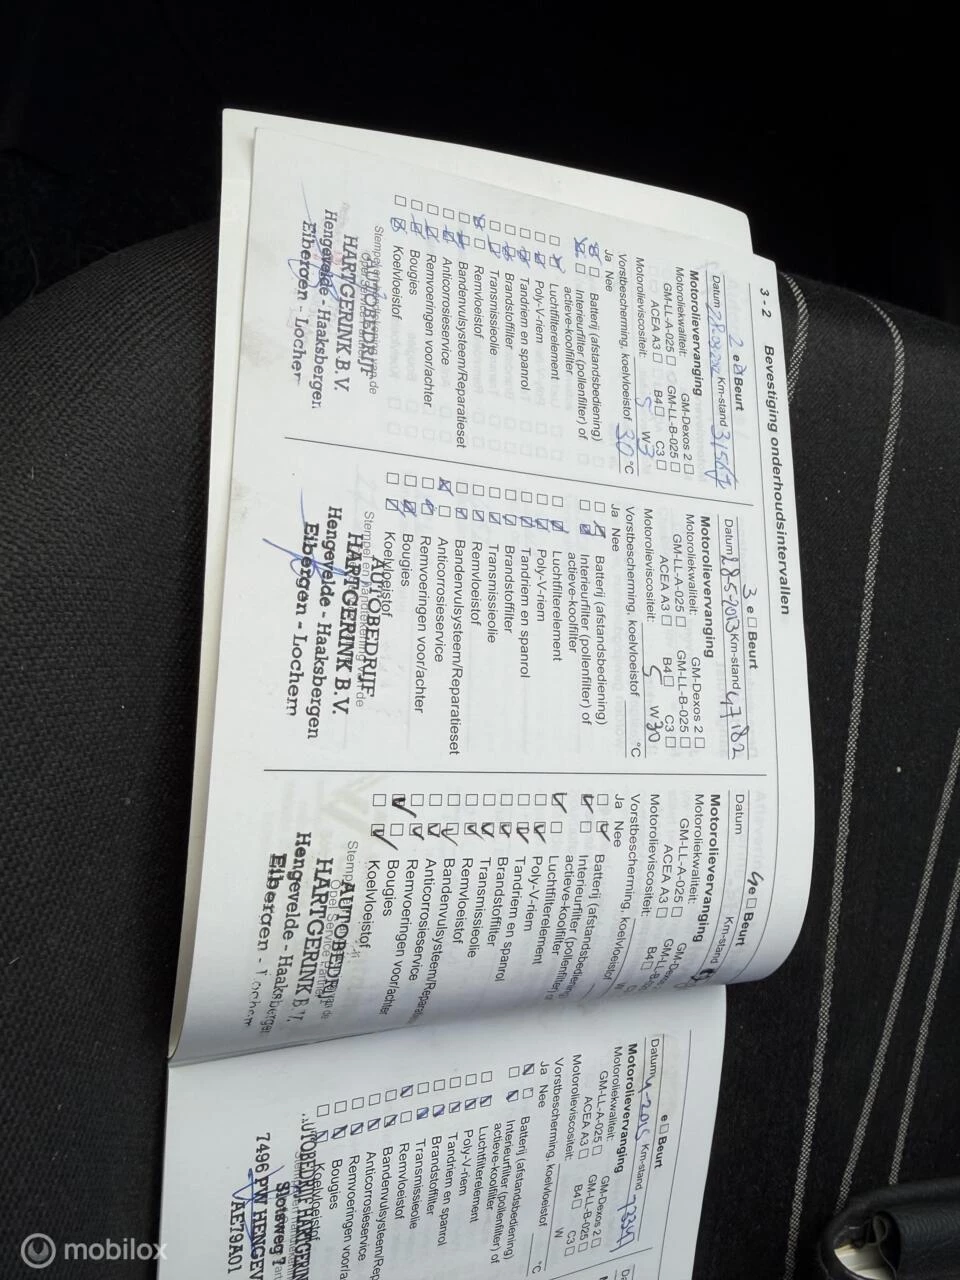 3 - 2
Bevestiging onderhoudsintervallen
2 e Beurt
Datum 28.09.2012 Km-stand
Motorolievervanging
Motoroliekwaliteit: GM-Dexos 2
GM-LL-A-025 GM-LL-B-025
ACEA A3 B4 C3
Motorolieviscositeit: 5 W
Vorstbescherming, koelvloeistof 30 °C
Ja Nee
Batterij (afstandsbediening)
Interieurfilter (pollenfilter) of
actieve-koolfilter
Luchtfilterelement
Poly-V-riem
Tandriem en spanrol
Brandstoffilter
Transmissieolie
Remvloeistof
Bandenvulsysteem/Reparatieset
Anticorrosieservice
Remvoeringen voor/achter
Bougies
Koelvloeistof
AUTOBEDRIJF
HARTGERINK B.V.
Hengevelde - Haaksbergen
Eibergen - Lochem
3 e Beurt
Datum 28-5-2013 Km-stand 47182
Motorolievervanging
Motoroliekwaliteit: GM-Dexos 2
GM-LL-A-025 GM-LL-B-025
ACEA A3 B4 C3
Motorolieviscositeit: 5 W 30
Vorstbescherming, koelvloeistof °C
Ja Nee
Batterij (afstandsbediening)
Interieurfilter (pollenfilter) of
actieve-koolfilter
Luchtfilterelement
Poly-V-riem
Tandriem en spanrol
Brandstoffilter
Transmissieolie
Remvloeistof
Bandenvulsysteem/Reparatieset
Anticorrosieservice
Remvoeringen voor/achter
Bougies
Koelvloeistof
Stempel en handtekening van de
AUTOBEDRIJF
HARTGERINK B.V.
Hengevelde - Haaksbergen
Eibergen - Lochem
4 e Beurt
Datum Km-stand
Motorolievervanging
Motoroliekwaliteit:
GM-LL-A-025
ACEA A3 B4
Motorolieviscositeit: W
Vorstbescherming, koelvloeistof
Ja Nee
Batterij (afstandsbediening
Interieurfilter (pollenfilter) of
actieve-koolfilter
Luchtfilterelement
Poly-V-riem
Tandriem en spanrol
Brandstoffilter
Transmissieolie
Remvloeistof
Bandenvulsysteem/Repara
Anticorrosieservice
Remvoeringen voor/achter
Bougies
Koelvloeistof
AUTOBEDRIJF
Opel Service Partner
HARTGERINK B.V.
Hengevelde - Haaksbergen
Eibergen - Lochem
e Beurt
Datum 4-2015 Km-stand
Motorolievervanging
Motoroliekwaliteit: GM-Dexos 2
GM-LL-A-025 GM-LL-B-025
ACEA A3 B4 C3
Motorolieviscositeit: W
Vorstbescherming, koelvloeistof °C
Ja Nee
Batterij (afstandsbediening)
Interieurfilter (pollenfilter) of
actieve-koolfilter
Luchtfilterelement
Poly-V-riem
Tandriem en spanrol
Brandstoffilter
Transmissieolie
Remvloeistof
Bandenvulsysteem/Rep
Anticorrosieservice
Remvoeringen voor/a
Bougies
Koelvloeistof
AUTOBEDRIJF HARTGERIN
Slotsweg 7
7496 PW HENGEV
AE79A01
mobilox